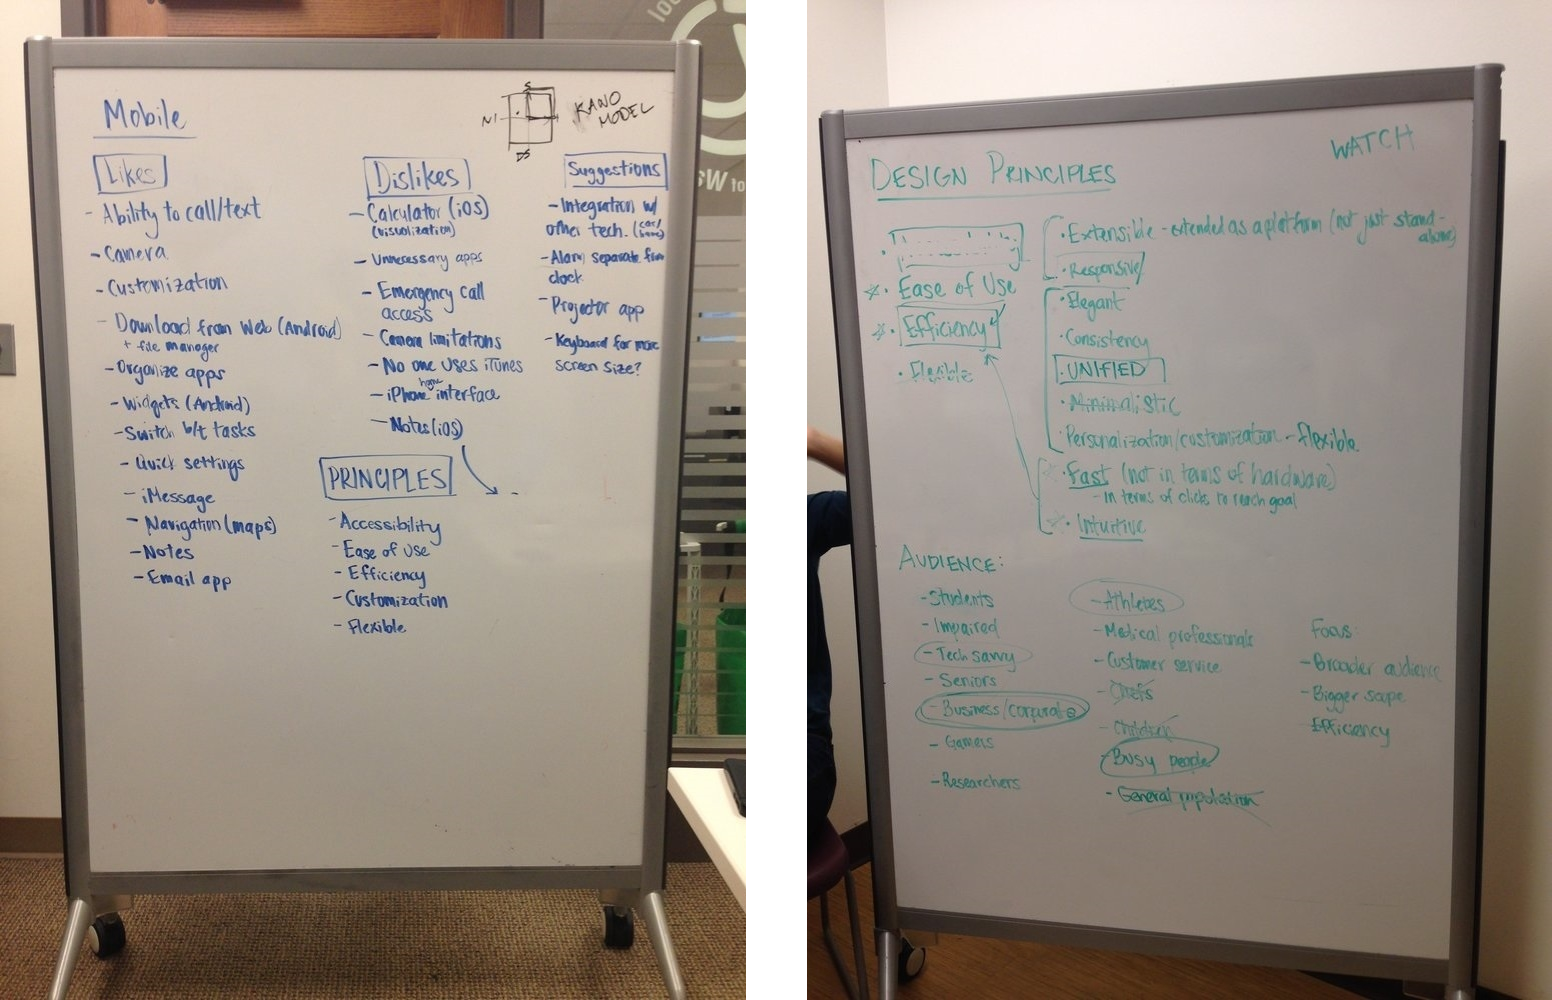 Mobile
S
NI
DS
KANO
MODEL
Likes
- Ability to call/text
- Camera
- Customization
- Download from Web (Android)
+ file manager
- Organize apps
- Widgets (Android)
- Switch b/t tasks
- Quick settings
- iMessage
- Navigation (maps)
- Notes
- Email app
Dislikes
- Calculator (iOS)
(visualization)
- Unnecessary apps
- Emergency call
access
- Camera limitations
- No one uses iTunes
- iPhone home interface
- Notes (iOS)
Suggestions
- Integration w/
other tech. (car/
home)
- Alarm separate from
clock
- Projector app
- Keyboard for more
screen size?
PRINCIPLES
- Accessibility
- Ease of Use
- Efficiency
- Customization
- Flexible
WATCH
DESIGN PRINCIPLES
· Ease of Use
· Efficiency
· Flexible
· Extensible - extended as a platform (not just stand-
alone)
· Responsive
· Elegant
· Consistency
· UNIFIED
· Minimalistic
· Personalization/customization - Flexible
· Fast (not in terms of hardware)
- in terms of clicks to reach goal
· Intuitive
AUDIENCE:
- Students
- Impaired
- Tech savvy
- Seniors
- Business/corporate
- Gamers
- Researchers
- Athletes
- Medical professionals
- Customer service
- Chefs
- Children
- Busy people
- General population
Focus:
- Broader audience
- Bigger scope
- Efficiency